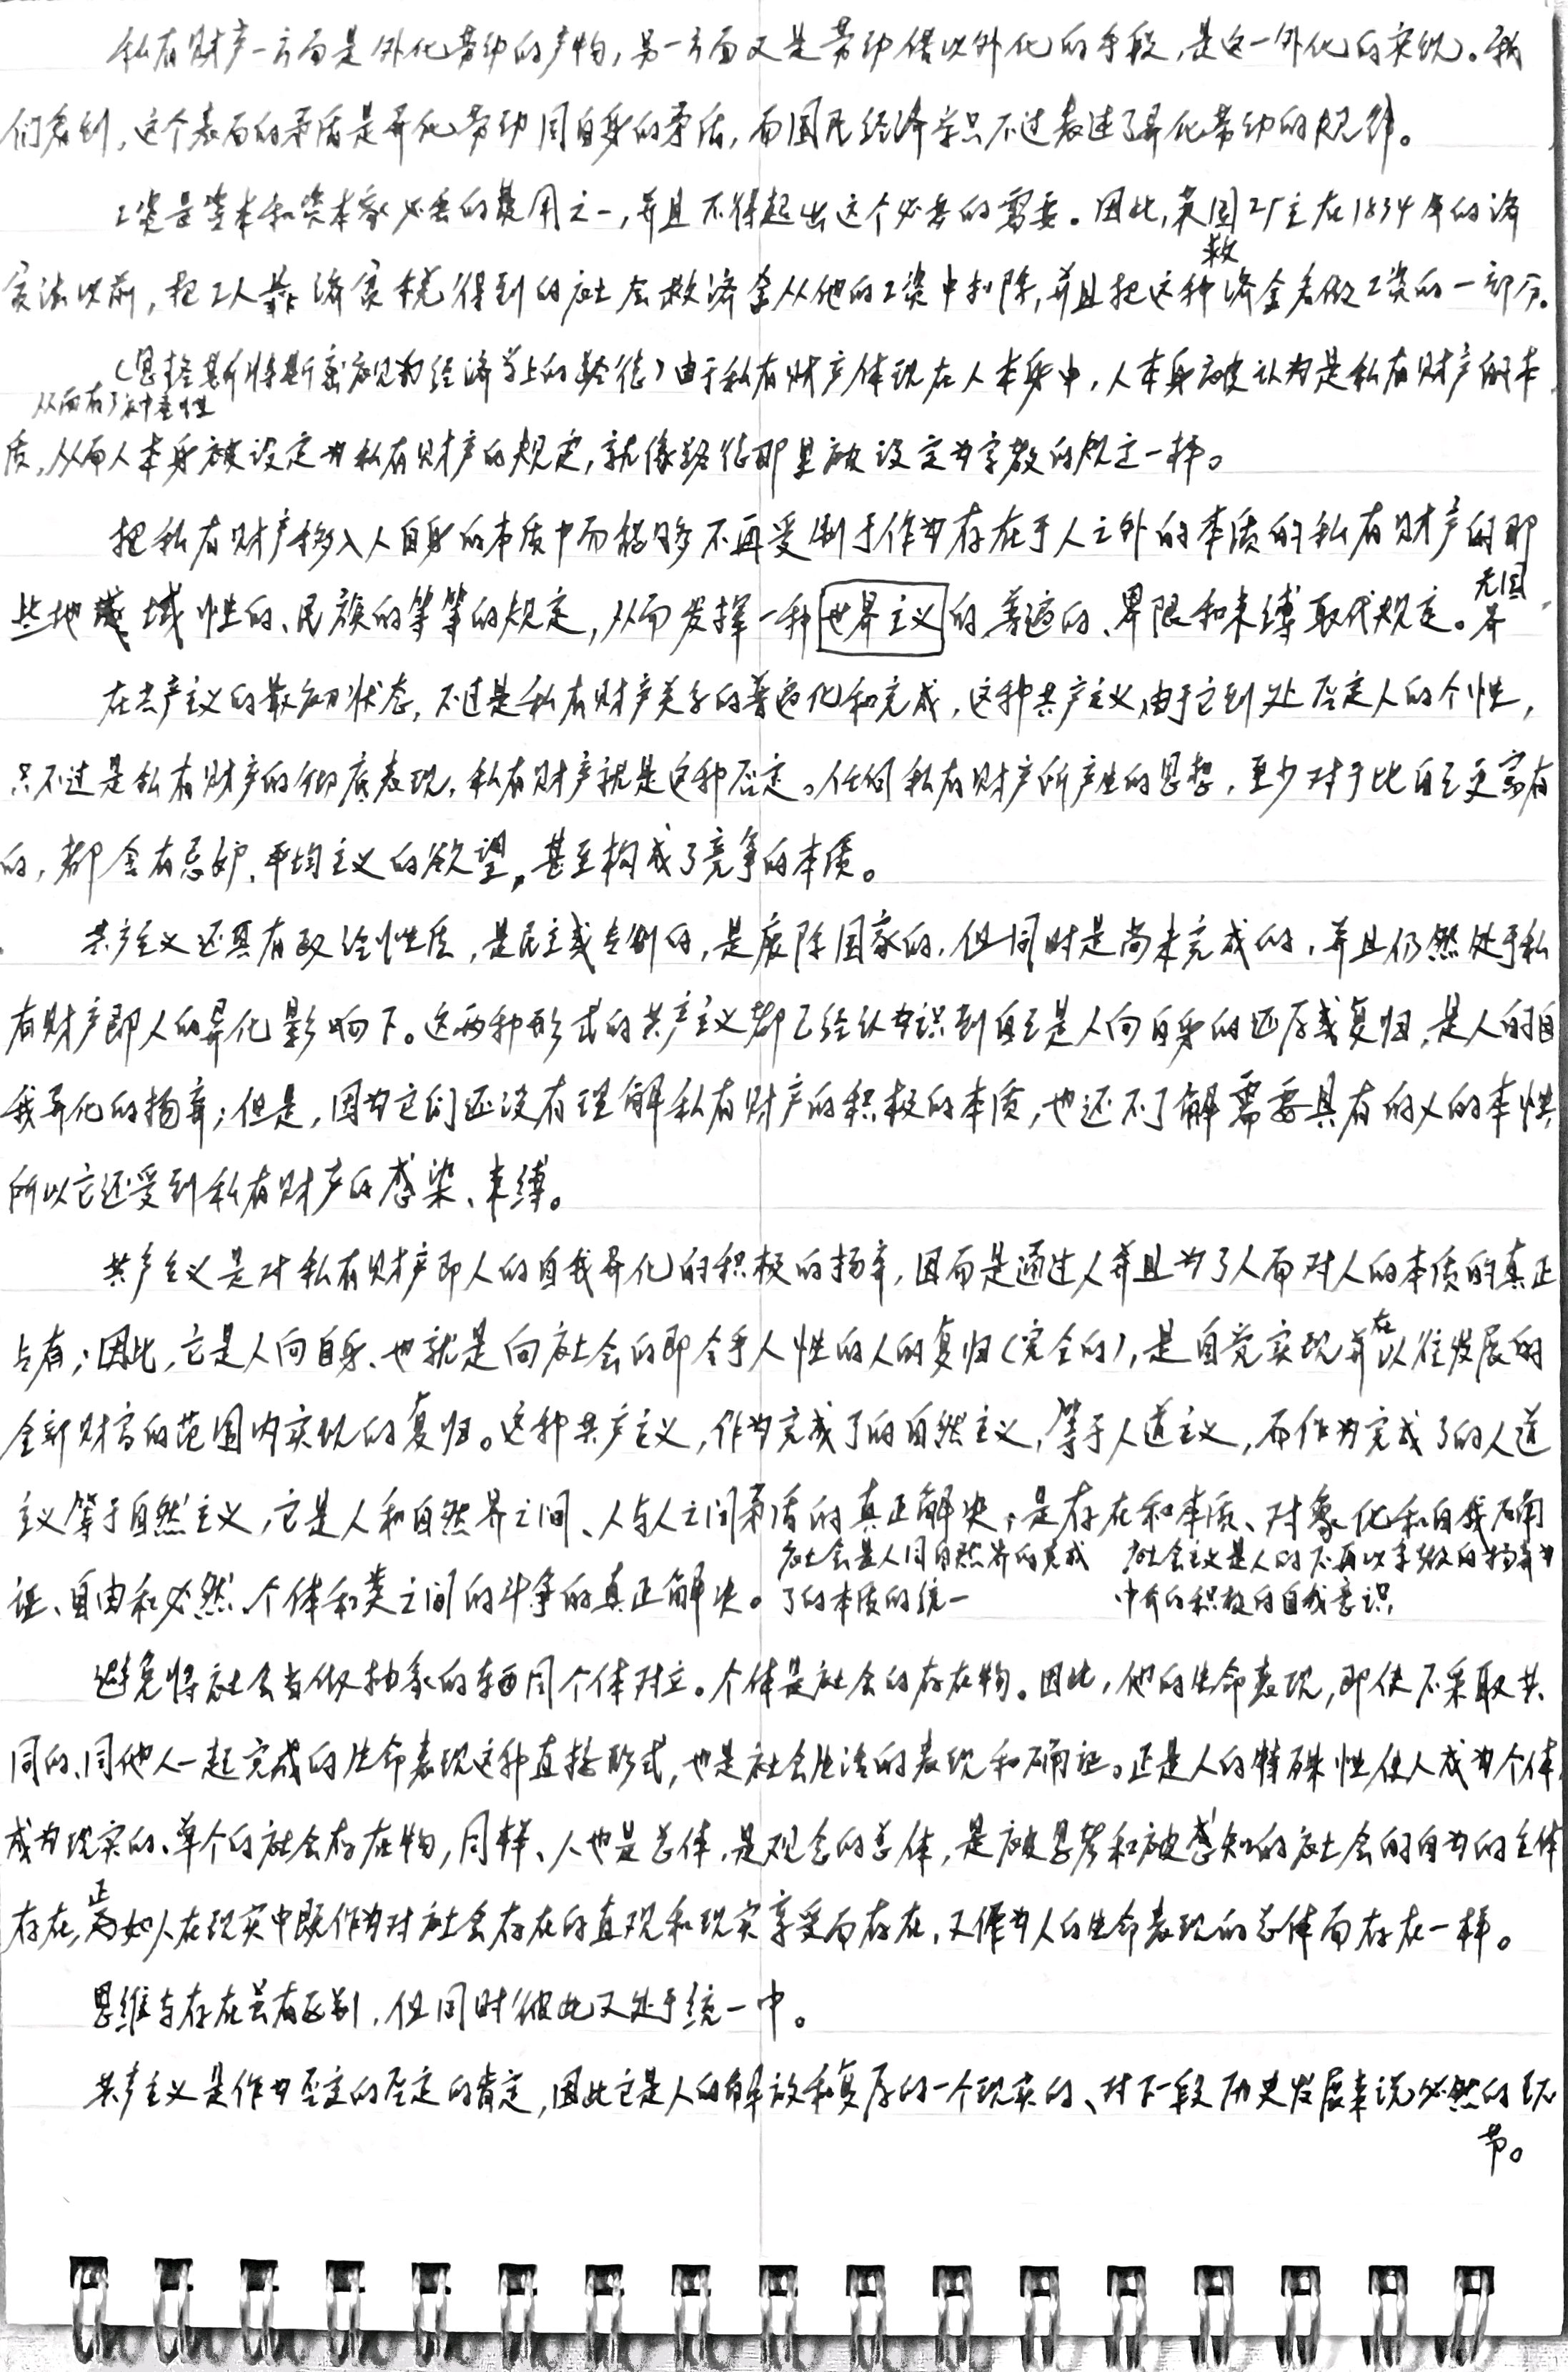 私有财产一方面是外化劳动的产物,另一方面又是劳动借以外化的手段,是这一外化的实现。我
们看到,这个表面的矛盾是异化劳动同自身的矛盾,而国民经济学只不过表述了异化劳动的规律。
工资是资本和资本家必要的费用之一,并且不得超出这个必要的需要。因此,英国工厂主在1834年的济
救
贫法以前,把工人靠济贫税得到的社会救济金从他的工资中扣除,并且把这种济金看做工资的一部分。
(恩格斯将斯密视为经济学上的路德)由于私有财产体现在人本身中,人本身被认为是私有财产的本
从而有了
质,从而人本身被设定为私有财产的规定,就像路德那里被设定为宗教的规定一样。
把私有财产移入人自身的本质中而能够不再受制于作为存在于人之外的本质的私有财产的那
无国
些地域性的、民族的等等的规定,从而发挥一种世界主义的、普遍的、界限和束缚取代规定。界
在共产主义的最初状态,不过是私有财产关系的普遍化和完成,这种共产主义,由于它到处否定人的个性,
只不过是私有财产的彻底表现,私有财产就是这种否定。任何私有财产所产生的思想,至少对于比自己更富有
的,都会有忌妒、平均主义的欲望,甚至构成了竞争的本质。
共产主义还具有政治性质,是民主或专制的,是废除国家的,但同时是尚未完成的,并且仍然处于私
有财产即人的异化影响下。这两种形式的共产主义都已经认识到自己是人向自身的还原或复归,是人的自
我异化的扬弃;但是,因为它们还没有理解私有财产的积极的本质,也还不了解需要具有的人的本性,
所以它还受到私有财产的感染、束缚。
共产主义是对私有财产即人的自我异化的积极的扬弃,因而是通过人并且为了人而对人的本质的真正
占有;因此,它是人向自身、也就是向社会的即合乎人性的人的复归(完全的),是自觉实现并在以往发展的
全部财富的范围内实现的复归。这种共产主义,作为完成了的自然主义,等于人道主义,而作为完成了的人道
主义等于自然主义,它是人和自然界之间、人与人之间矛盾的真正解决,是存在和本质、对象化和自我确
社会是人同自然界的完成 社会主义是人的不再以宗教的扬弃为
证、自由和必然、个体和类之间的斗争的真正解决。了的本质的统一 中介的积极的自我意识,
避免将社会当做抽象的东西同个体对立。个体是社会的存在物。因此,他的生命表现,即使不采取共
同的、同他人一起完成的生命表现这种直接形式,也是社会生活的表现和确证。正是人的特殊性使人成为个体,
成为现实的、单个的社会存在物,同样、人也是总体,是观念的总体,是被思考和被感知的社会的自为的主体
存在,正如人在现实中既作为对社会存在的直观和现实享受而存在,又作为人的生命表现的总体而存在一样。
思维与存在虽有区别,但同时彼此又处于统一中。
共产主义是作为否定的否定的肯定,因此它是人的解放和复原的一个现实的、对下一段历史发展来说必然的环
节。